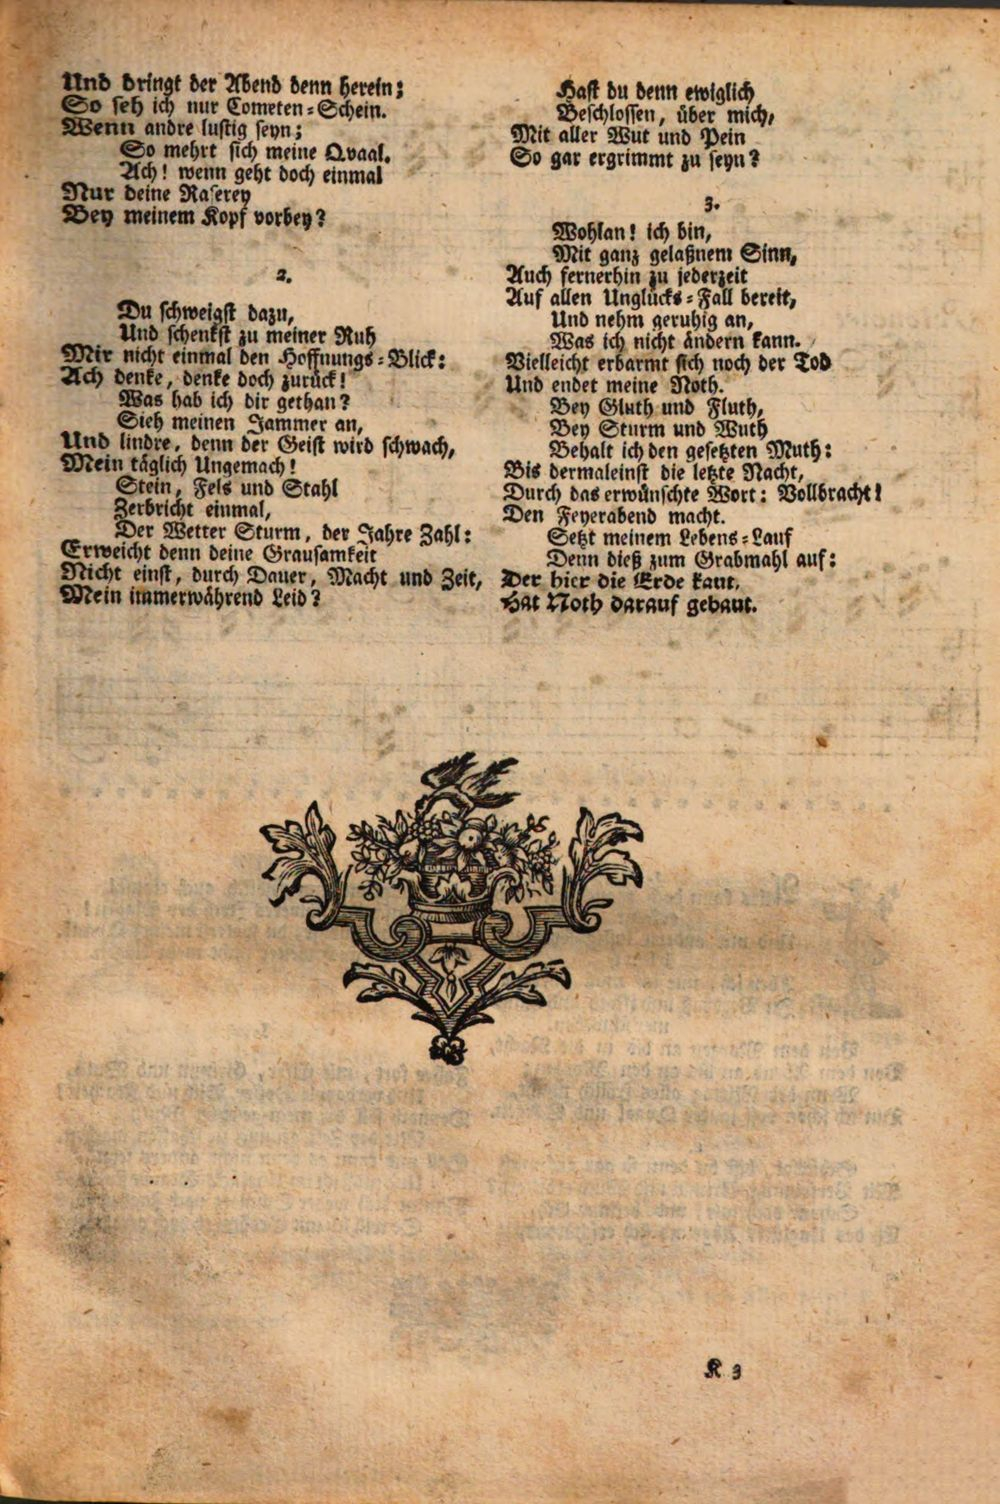 Und dringt der Abend denn herein;
So seh ich nur Cometen-Schein.
Wenn andre lustig seyn;
So mehrt sich meine Qvaal.
Ach! wenn geht doch einmal
Nur deine Raserey
Bey meinem Kopf vorbey?
2.
Du schweigst dazu,
Und schenkst zu meiner Ruh
Mir nicht einmal den Hoffnungs-Blick:
Ach denke, denke doch zurück!
Was hab ich dir gethan?
Sieh meinen Jammer an,
Und lindre, denn der Geist wird schwach,
Mein täglich Ungemach!
Stein, Fels und Stahl
Zerbricht einmal,
Der Wetter Sturm, der Jahre Zahl:
Erweicht denn deine Grausamkeit
Nicht einst, durch Dauer, Macht und Zeit,
Mein immerwährend Leid?
Hast du denn ewiglich
Beschlossen, über mich,
Mit aller Wut und Pein
So gar ergrimmt zu seyn?
3.
Wohlan! ich bin,
Mit ganz gelaßnem Sinn,
Auch fernerhin zu jederzeit
Auf allen Unglücks-Fall bereit,
Und nehm geruhig an,
Was ich nicht ändern kann.
Vielleicht erbarmt sich noch der Tod
Und endet meine Noth.
Bey Gluth und Fluth,
Bey Sturm und Wuth
Behalt ich den gesetzten Muth:
Bis dermaleinst die letzte Nacht,
Durch das erwünschte Wort: Vollbracht!
Den Feyerabend macht.
Setzt meinem Lebens-Lauf
Denn dieß zum Grabmahl auf:
Der hier die Erde kaut,
Hat Noth darauf gebaut.
K 3